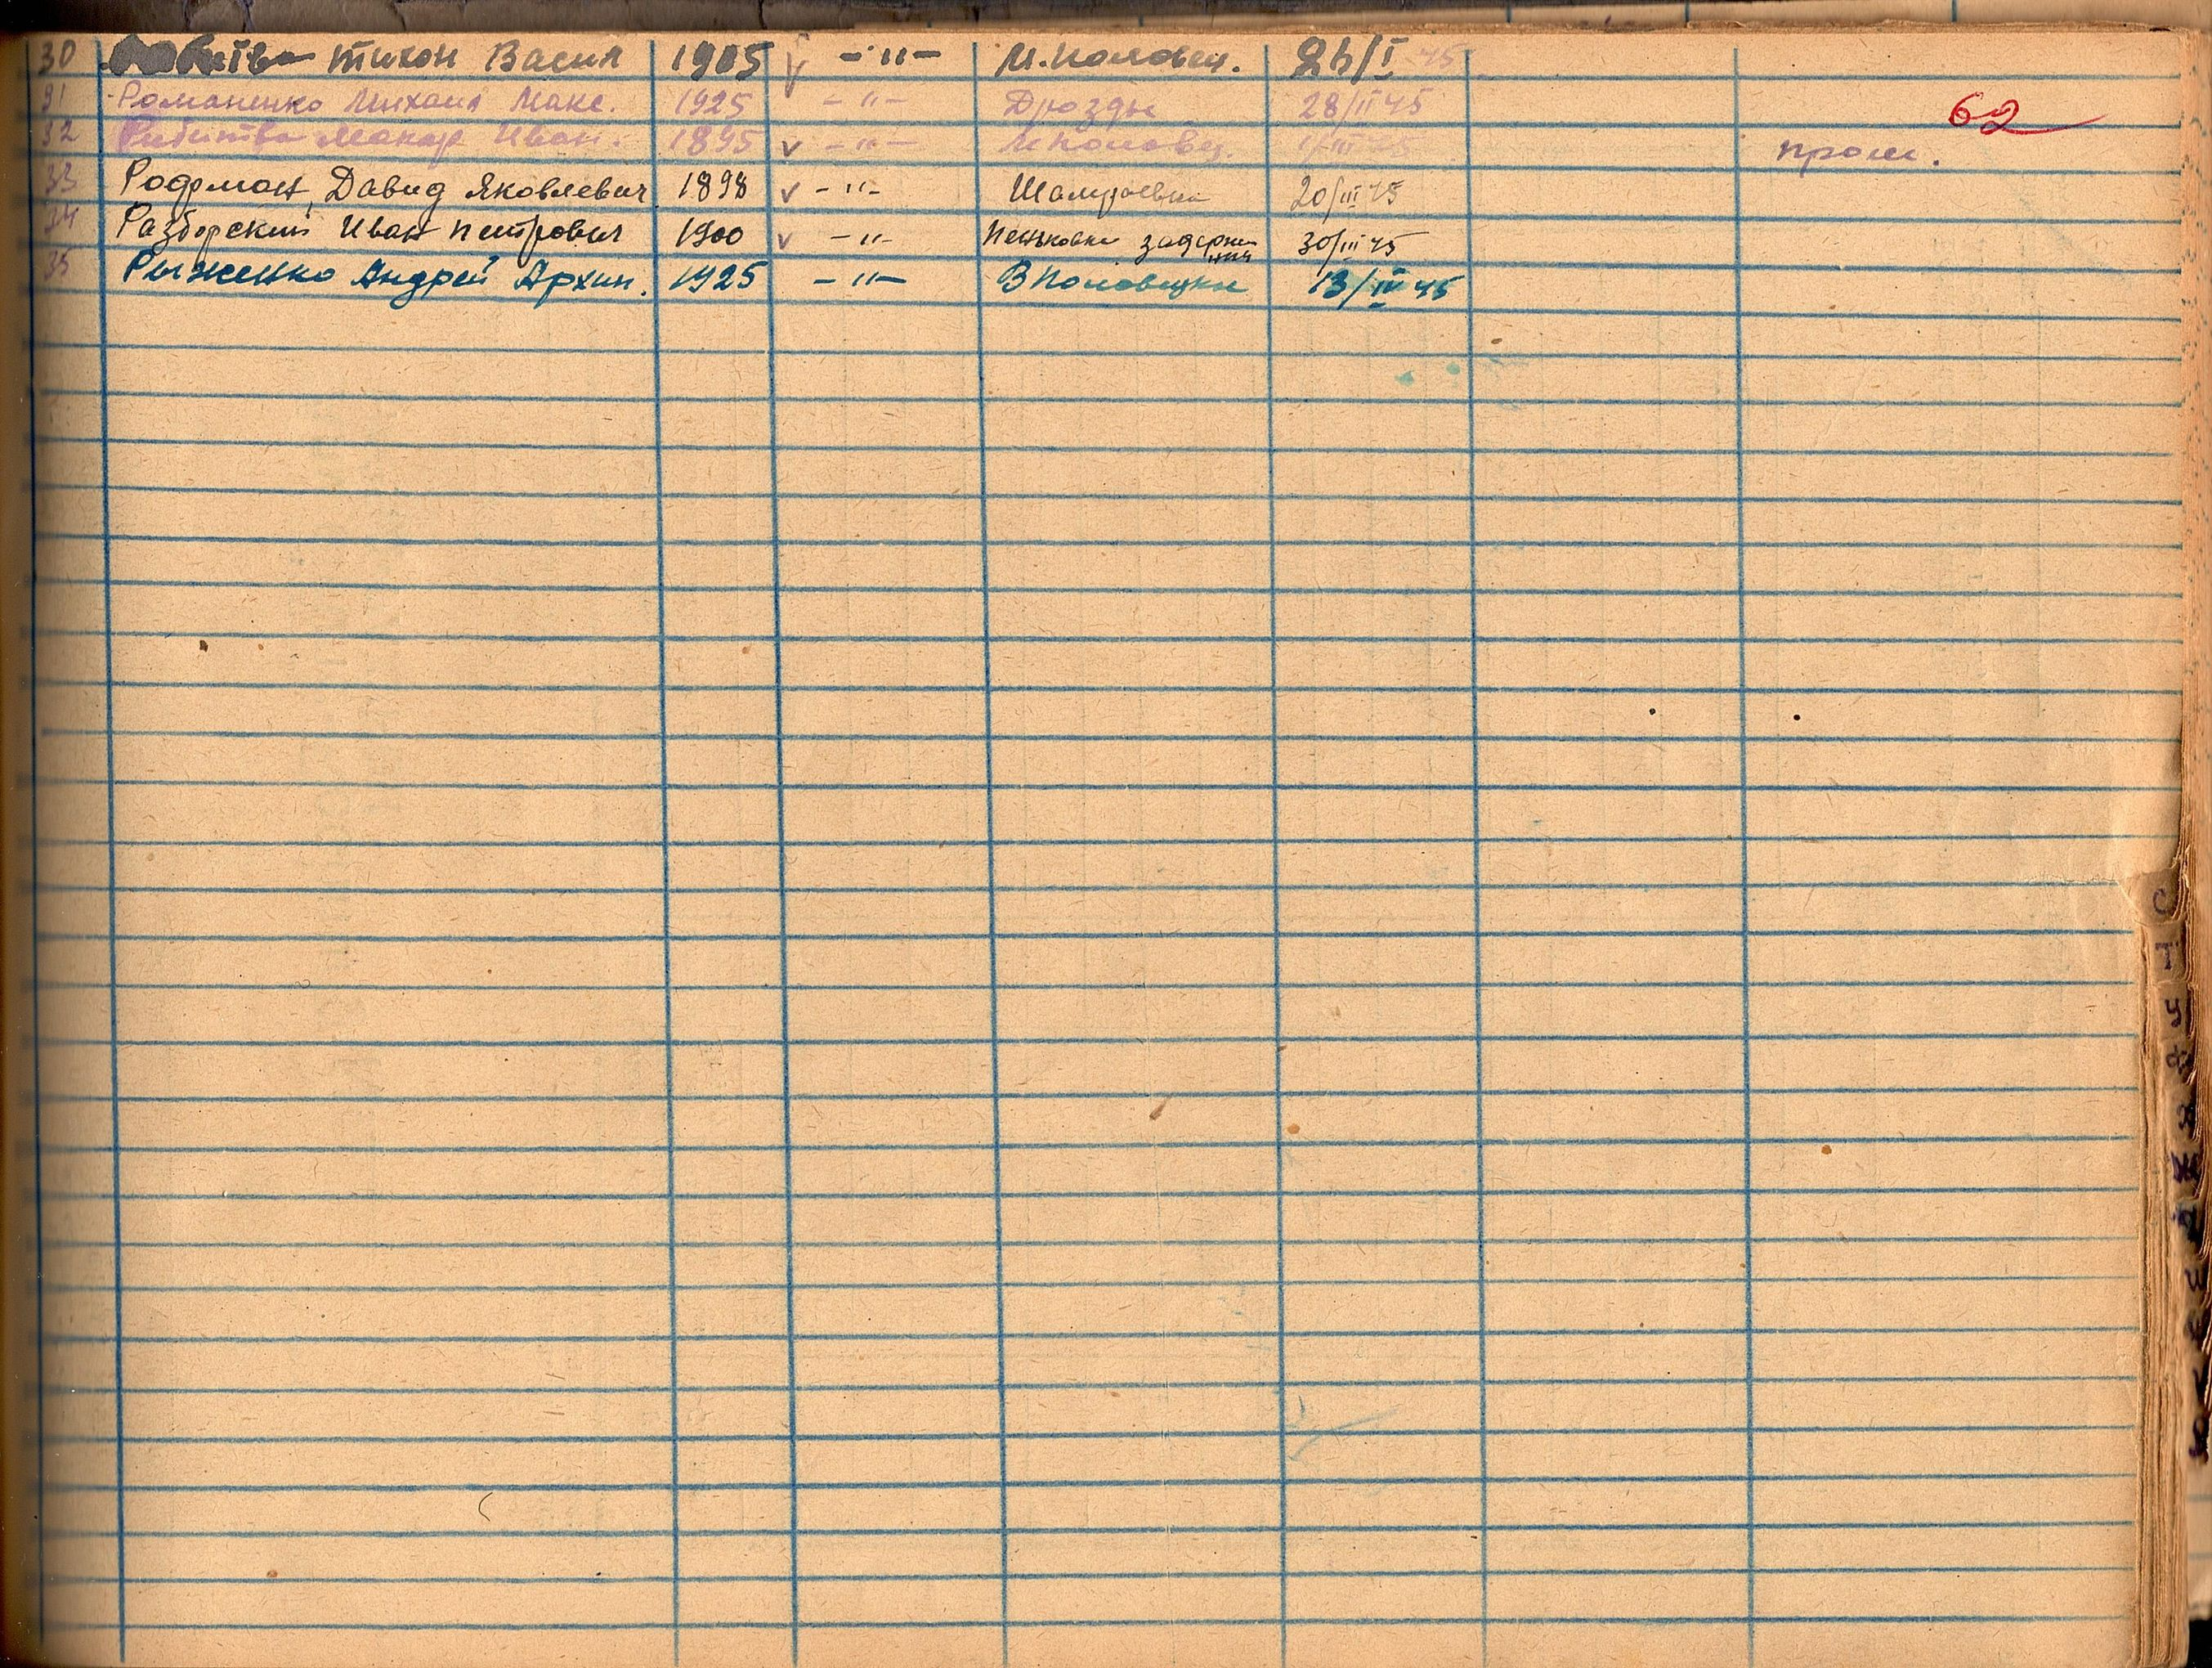 30 Тихон Васил 1905 v -"- М.Половец. 26/I 45
31 Романенко Михаил Макс. 1925 -"- Дрозды 28/II 45
62
32 Макар Иван. 1895 v -"- М Половец. 1/III 45 пром.
33 Родрман, Давид Яковлевич 1898 v -"- Шамраевка 20/III 45
34 Разборский Иван Петрович 1900 v -"- Пеньковка 30/III 45
35 Рыженко Андрей Архип. 1925 -"- В Половецкое 13/IV 45
С
Т
У